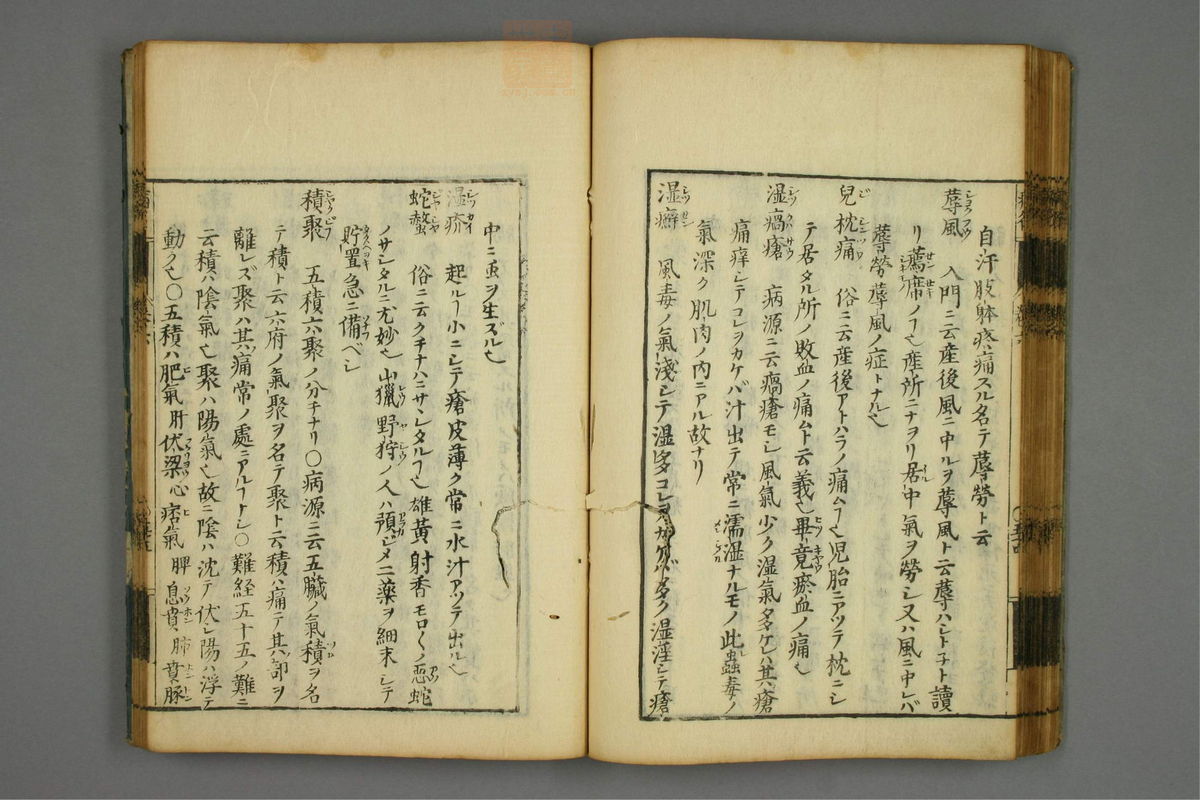 自汗肢体疼痛スル名テ蓐勞ト云
蓐風 入門ニ云産後風ニ中ルヲ蓐風ト云蓐ハシトネト讀
リ薦席ノヿ也産所ニナヲリ居中氣ヲ勞シ又ハ風ニ中レバ
蓐勞蓐風ノ症トナル也
兒枕痛 俗ニ云産後アトハラノ痛ムヿ也児胎ニアツテ枕ニシ
テ居タル所ノ敗血ノ痛ムト云義也畢竟瘀血ノ痛也
湿瘑瘡 病源ニ云瘑瘡モシ風氣少ク湿氣多ケレハ其瘡
痛痒シテコレヲカケバ汁出テ常ニ濡湿ナルモノ此蟲毒ノ
氣深ク肌肉ノ内ニアル故ナリ
湿癬 風毒ノ氣浅シテ湿多コレヲカケバ多ク湿淫シテ瘡
中ニ虫ヲ生ズル也
湿疥 起ルヿ小ニシテ瘡皮薄ク常ニ水汁アツテ出ル也
蛇螫 俗ニ云クチナハニサヽレタルヿ也雄黄射香モロ〱ノ悪蛇
ノサシタルニ尤妙也山獵野狩ノ人ハ預ジメ二薬ヲ細末シテ
貯置急ニ備ベシ
積聚 五積六聚ノ分チナリ〇病源ニ云五臓ノ氣積ヲ名
テ積ト云六府ノ氣聚ヲ名テ聚ト云積ハ痛テ其部ヲ
離レズ聚ハ其痛常ノ處ニアルヿナシ〇難経五十五ノ難ニ
云積ハ陰氣也聚ハ陽氣也故ニ陰ハ沈テ伏シ陽ハ浮テ
動ク也〇五積ハ肥氣肝伏梁心痞氣脾息賁肺賁豚